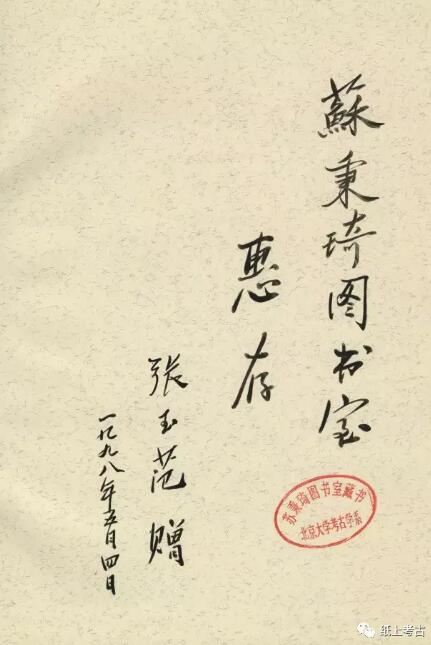 蘇秉琦图书室
惠存
張玉范赠
一九九八年五月四日
苏秉琦图书室藏书
北京大学考古学系
纸上考古